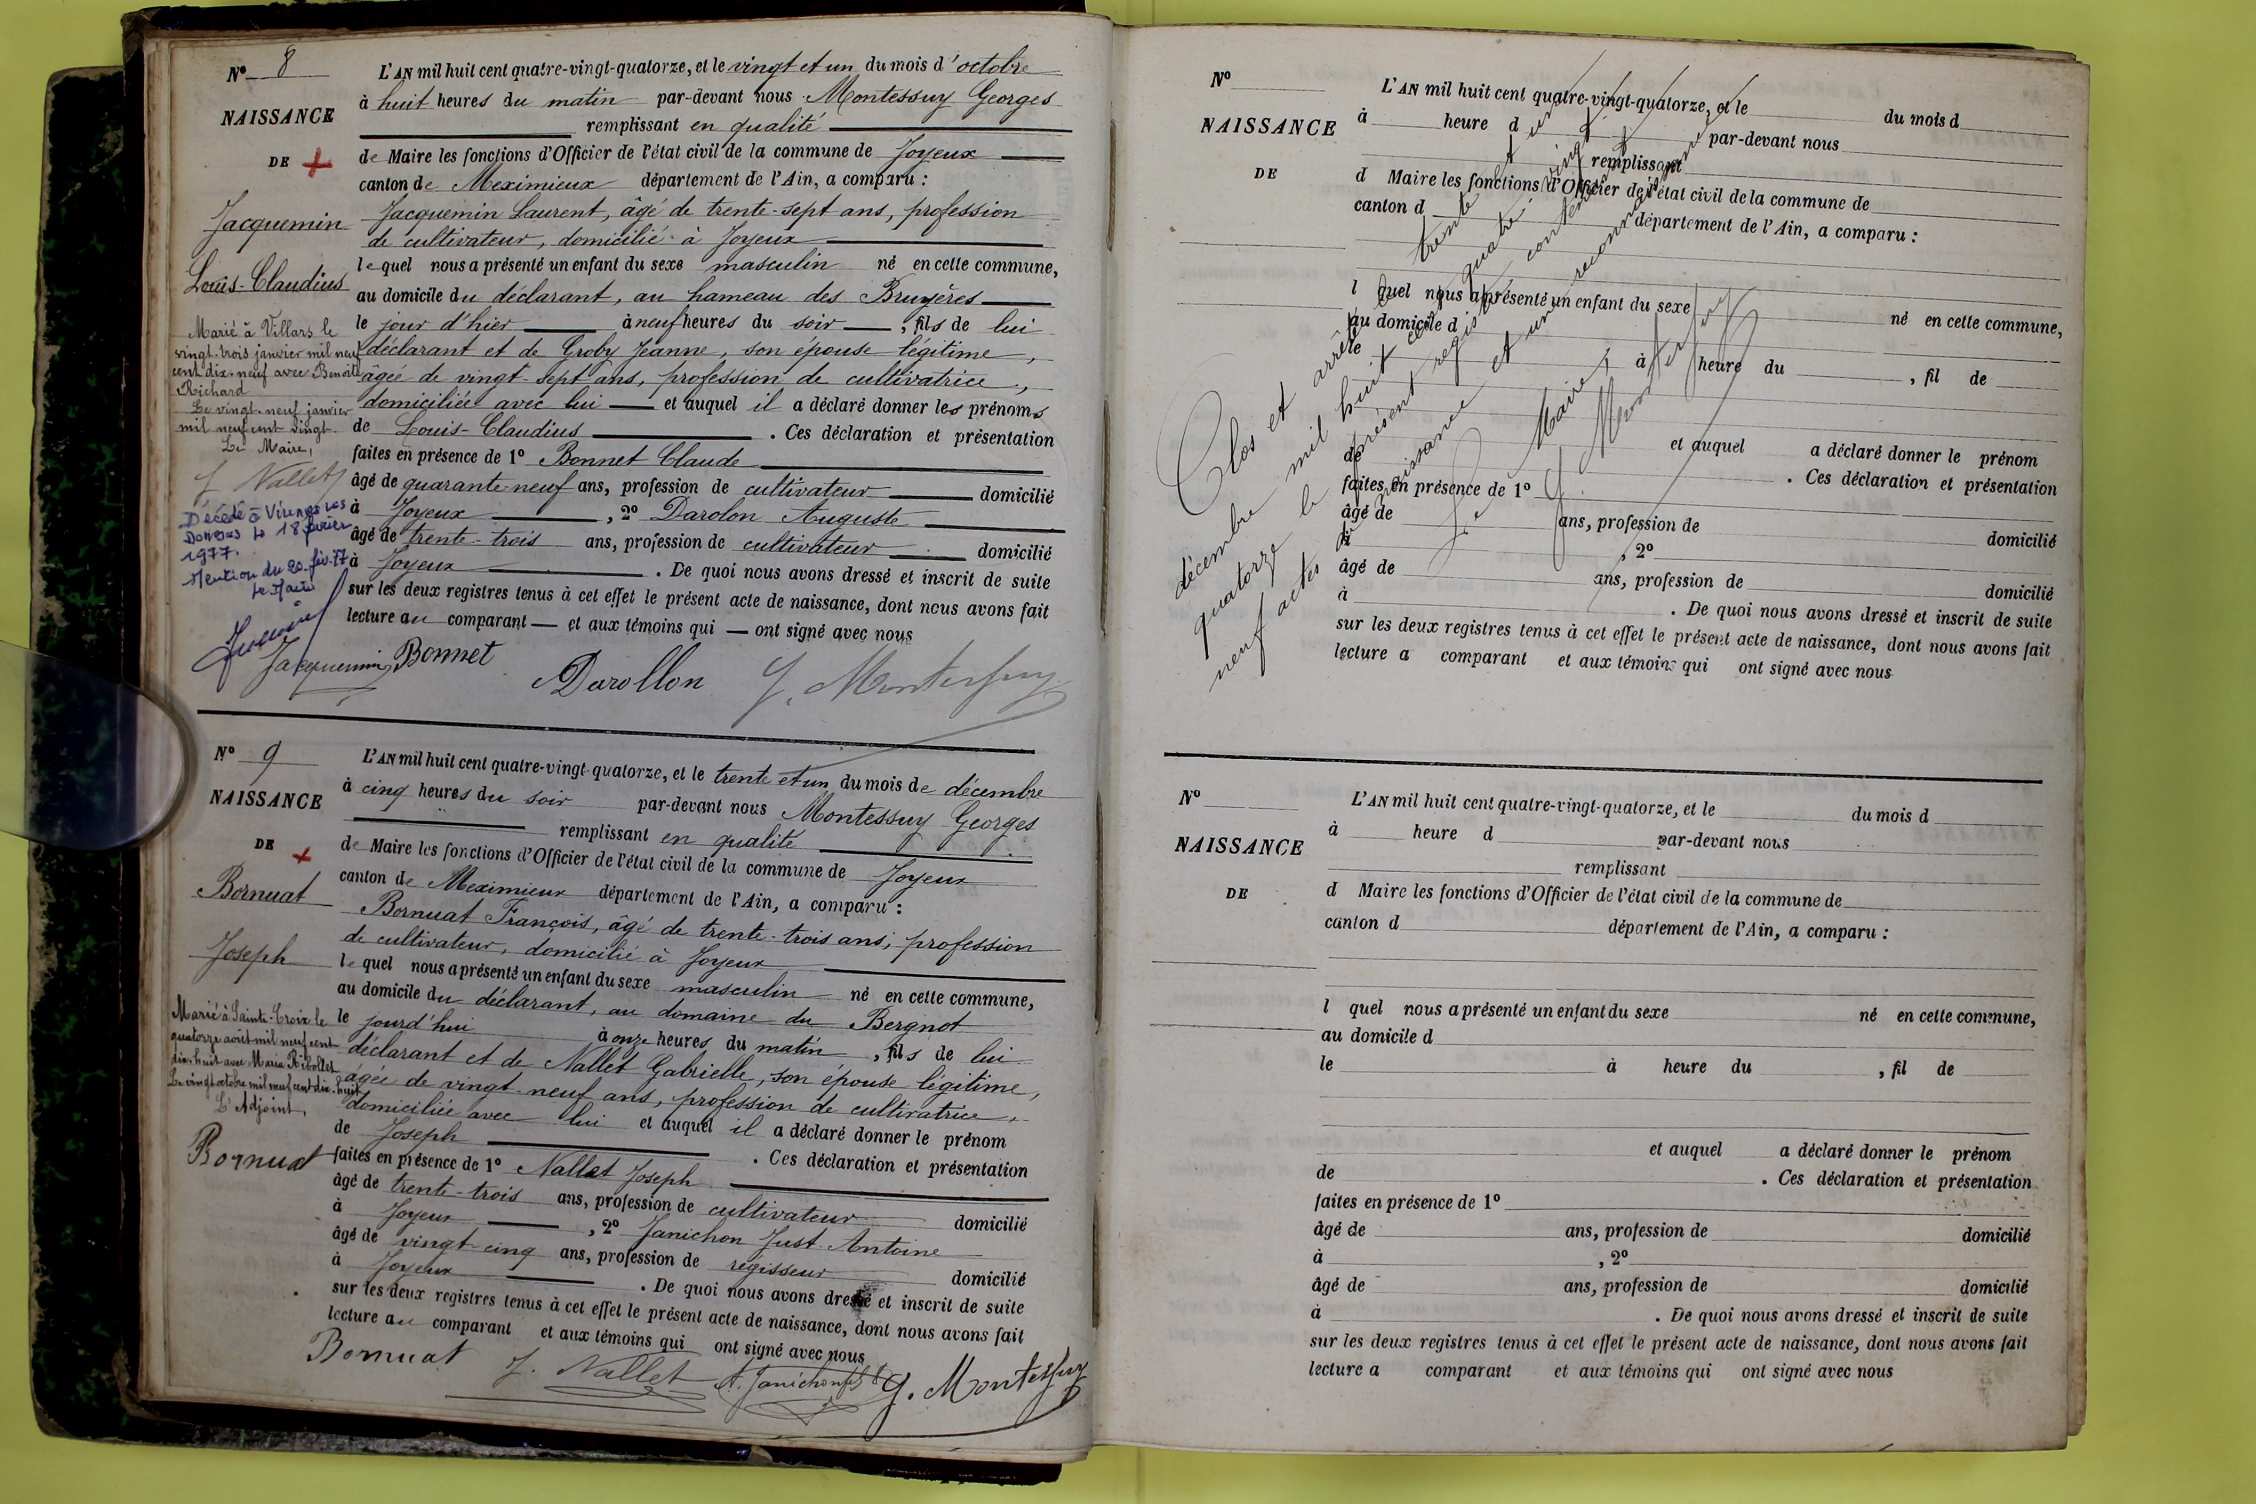 N° 8
NAISSANCE
DE
Jacquemin
Louis-Claudius
Marié à Villars le
vingt-trois janvier mil neuf
cent dix-neuf avec Benoîte
Richard
Le vingt-neuf janvier
mil neuf cent vingt.
Le Maire,
J Nallet
Décédé à
Dombes le 18 février
1977.
Mention du 20. fév. 77
Le Maire
L'AN mil huit cent quatre-vingt-quatorze, et le vingt et un du mois d'octobre
à huit heures du matin par-devant nous Montessuy Georges
remplissant en qualité
de Maire les fonctions d'Officier de l'état civil de la commune de Joyeux
canton de Meximieux département de l'Ain, a comparu :
Jacquemin Laurent, âgé de trente-sept ans, profession
de cultivateur, domicilié à Joyeux
lequel nous a présenté un enfant du sexe masculin né en cette commune,
au domicile du déclarant, au hameau des Bruyères
le jour d'hier à neuf heures du soir, fils de lui
déclarant et de Groby Jeanne, son épouse légitime,
âgée de vingt-sept ans, profession de cultivatrice,
domiciliée avec lui et auquel il a déclaré donner les prénoms
de Louis-Claudius . Ces déclaration et présentation
faites en présence de 1° Bonnet Claude
âgé de quarante-neuf ans, profession de cultivateur domicilié
à Joyeux , 2° Darolon Auguste
âgé de trente-trois ans, profession de cultivateur domicilié
à Joyeux . De quoi nous avons dressé et inscrit de suite
sur les deux registres tenus à cet effet le présent acte de naissance, dont nous avons fait
lecture au comparant et aux témoins qui ont signé avec nous
Jacquemin Bonnet
Darollon G. Montessuy
N° 9
NAISSANCE
DE
Bornuat
Joseph
Marié à Sainte-Croix le
quatorze août mil neuf cent
dix-huit avec Maria Ribollet
Le vingt octobre mil neuf cent dix-huit
L'Adjoint,
Bornuat
L'AN mil huit cent quatre-vingt-quatorze, et le trente et un du mois de décembre
à cinq heures du soir par-devant nous Montessuy Georges
remplissant en qualité
de Maire les fonctions d'Officier de l'état civil de la commune de Joyeux
canton de Meximieux département de l'Ain, a comparu :
Bornuat François, âgé de trente-trois ans, profession
de cultivateur, domicilié à Joyeux
lequel nous a présenté un enfant du sexe masculin né en cette commune,
au domicile du déclarant, au domaine du Bergnot
le jourd'hui à onze heures du matin, fils de lui
déclarant et de Nallet Gabrielle, son épouse légitime,
âgée de vingt-neuf ans, profession de cultivatrice,
domiciliée avec lui et auquel il a déclaré donner le prénom
de Joseph . Ces déclaration et présentation
faites en présence de 1° Nallet Joseph
âgé de trente-trois ans, profession de cultivateur domicilié
à Joyeux , 2° Janichon Just-Antoine
âgé de vingt-cinq ans, profession de régisseur domicilié
à Joyeux . De quoi nous avons dressé et inscrit de suite
sur les deux registres tenus à cet effet le présent acte de naissance, dont nous avons fait
lecture au comparant et aux témoins qui ont signé avec nous
Bornuat J. Nallet A. Janichon G. Montessuy
N°
NAISSANCE
DE
L'AN mil huit cent quatre-vingt-quatorze, et le du mois d
à heure d par-devant nous
remplissant
d Maire les fonctions d'Officier de l'état civil de la commune de
canton d département de l'Ain, a comparu :
l quel nous a présenté un enfant du sexe né en cette commune,
au domicile d
le à heure du , fil de
et auquel a déclaré donner le prénom
de . Ces déclaration et présentation
faites en présence de 1°
âgé de ans, profession de domicilié
à , 2°
âgé de ans, profession de domicilié
à . De quoi nous avons dressé et inscrit de suite
sur les deux registres tenus à cet effet le présent acte de naissance, dont nous avons fait
lecture a comparant et aux témoins qui ont signé avec nous
Clos et arrêté le trente et un
décembre mil huit cent quatre-vingt
quatorze le présent registre contenant
neuf actes de naissance et un reconnaissance
Le Maire,
G. Montessuy
N°
NAISSANCE
DE
L'AN mil huit cent quatre-vingt-quatorze, et le du mois d
à heure d par-devant nous
remplissant
d Maire les fonctions d'Officier de l'état civil de la commune de
canton d département de l'Ain, a comparu :
l quel nous a présenté un enfant du sexe né en cette commune,
au domicile d
le à heure du , fil de
et auquel a déclaré donner le prénom
de . Ces déclaration et présentation
faites en présence de 1°
âgé de ans, profession de domicilié
à , 2°
âgé de ans, profession de domicilié
à . De quoi nous avons dressé et inscrit de suite
sur les deux registres tenus à cet effet le présent acte de naissance, dont nous avons fait
lecture a comparant et aux témoins qui ont signé avec nous